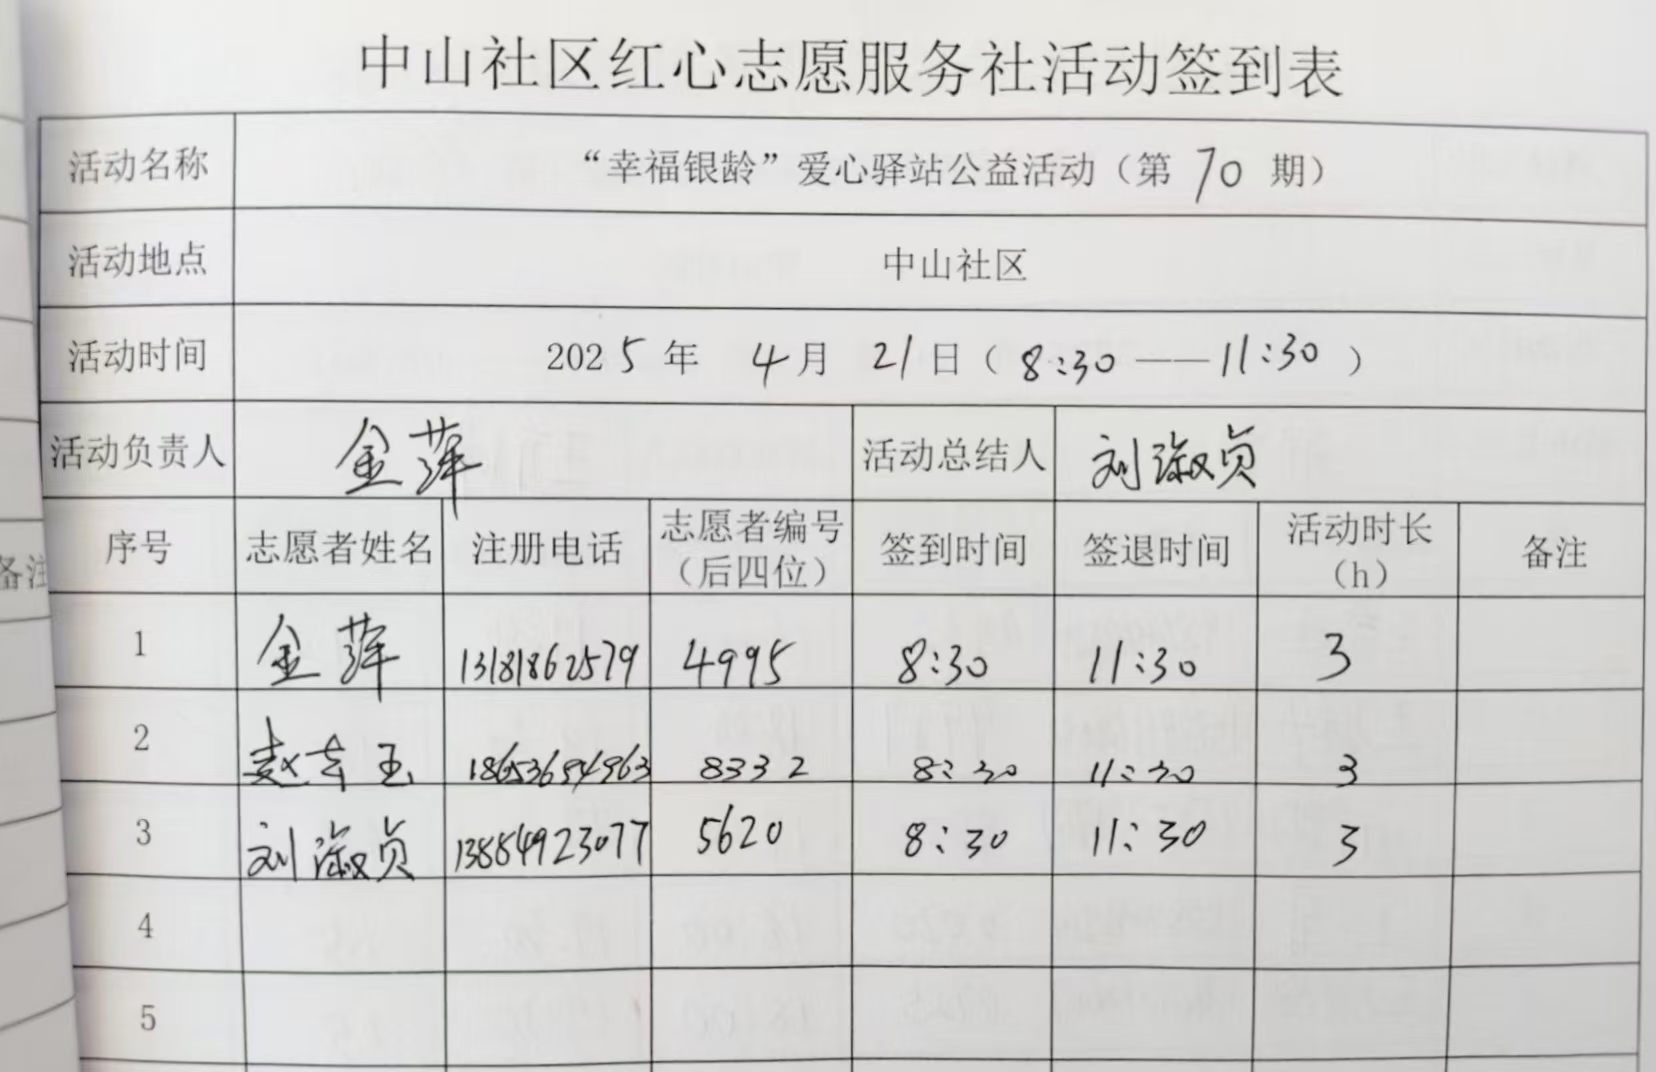 中山社区红心志愿服务社活动签到表
活动名称 “幸福银龄”爱心驿站公益活动（第 70 期）
活动地点 中山社区
活动时间 2025年 4月 21日（8:30——11:30）
活动负责人 金萍 活动总结人 刘淑贞
序号 志愿者姓名 注册电话 志愿者编号（后四位） 签到时间 签退时间 活动时长（h） 备注
1 金萍 13181862579 4995 8:30 11:30 3
2 赵玉 18653694963 8332 8:30 11:30 3
3 刘淑贞 13854923077 5620 8:30 11:30 3
4
5
备注